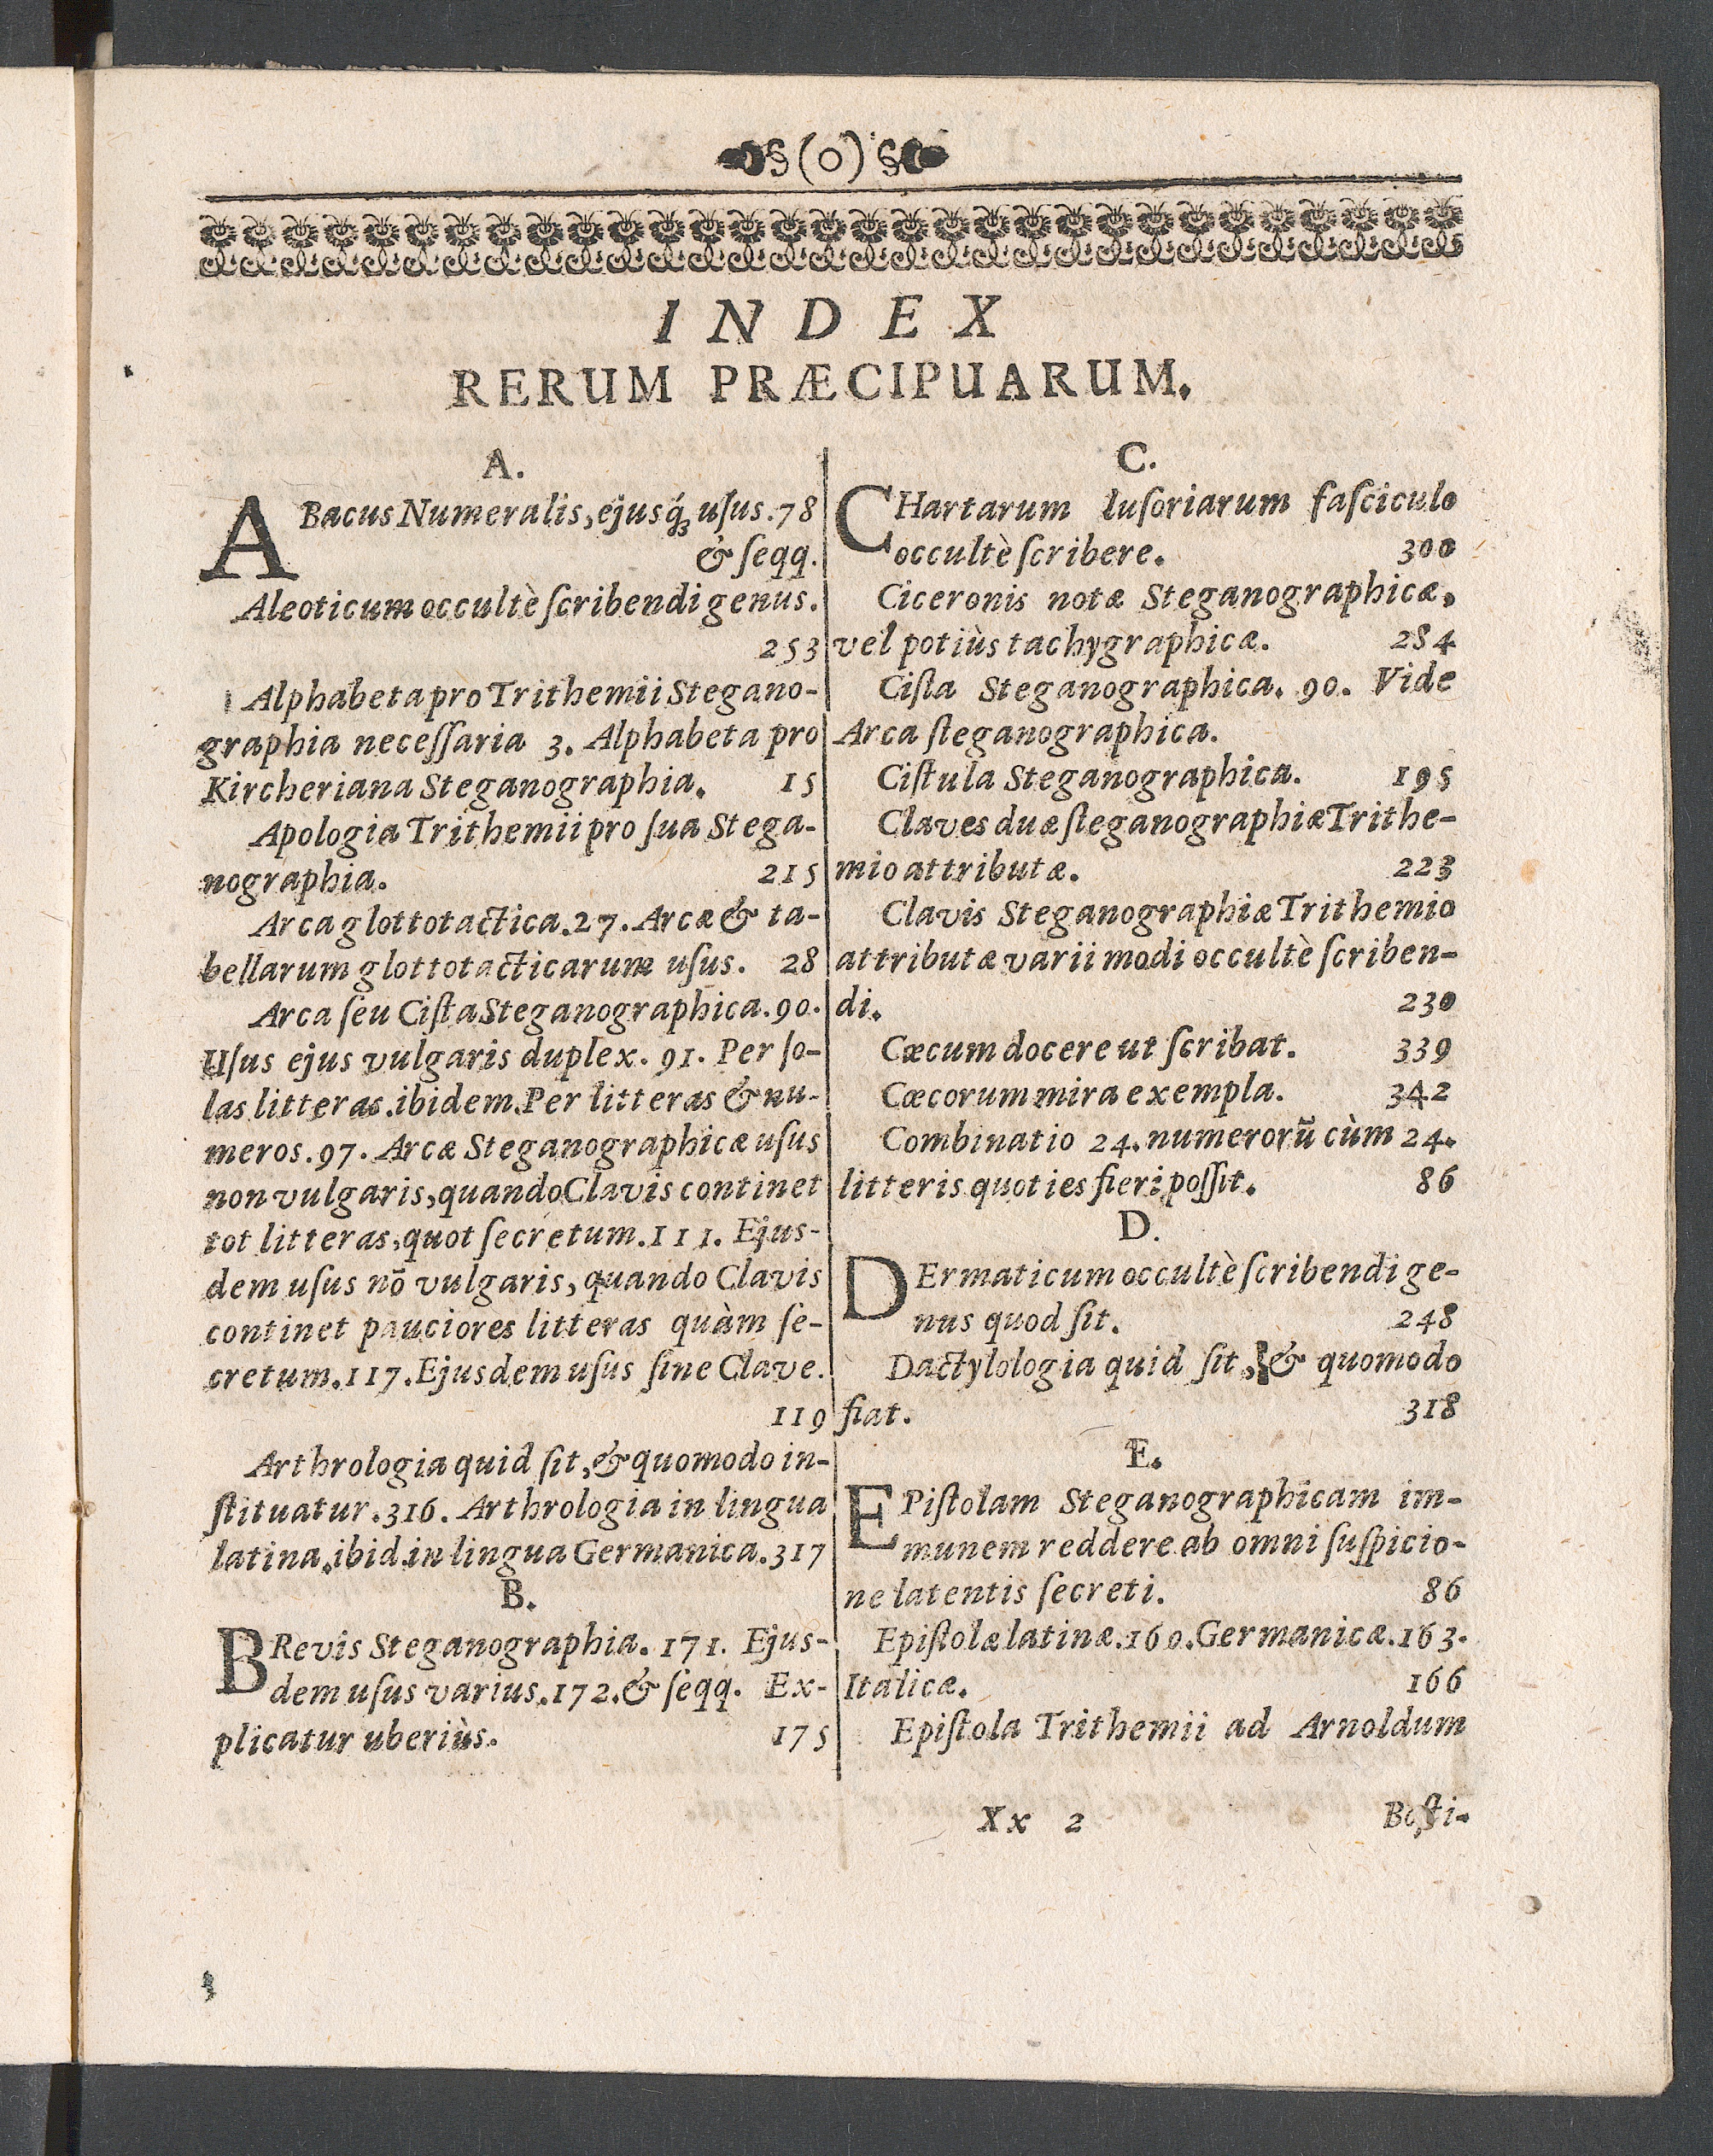 (o)
INDEX
RERUM PRÆCIPUARUM.
A.
ABacus Numeralis, ejusq́ꝫ uſus. 78
& ſeqq.
Aleoticum occultè ſcribendi genus.
253
Alphabeta pro Trithemii Stegano-
graphia neceſſaria 3. Alphabeta pro
Kircheriana Steganographia. 15
Apologia Trithemii pro ſua Stega-
nographia. 215
Arca glottotactica. 27. Arcæ & ta-
bellarum glottotacticarum uſus. 28
Arca ſeu Ciſta Steganographica. 90.
Uſus ejus vulgaris duplex. 91. Per ſo-
las litteras. ibidem. Per litteras & nu-
meros. 97. Arcæ Steganographicæ uſus
non vulgaris, quando Clavis continet
tot litteras, quot ſecretum. 111. Ejus-
dem uſus nō vulgaris, quando Clavis
continet pauciores litteras quàm ſe-
cretum. 117. Ejusdem uſus ſine Clave.
119
Arthrologia quid ſit, & quomodo in-
ſtituatur. 316. Arthrologia in lingua
latina. ibid. in lingua Germanica. 317
B.
BRevis Steganographia. 171. Ejus-
dem uſus varius. 172. & ſeqq. Ex-
plicatur uberiùs. 175
C.
CHartarum luſoriarum faſciculo
occultè ſcribere. 300
Ciceronis notæ Steganographicæ,
vel potiùs tachygraphicæ. 284
Ciſta Steganographica. 90. Vide
Arca ſteganographica.
Ciſtula Steganographica. 195
Claves duæ ſteganographiæ Trithe-
mio attributæ. 223
Clavis Steganographiæ Trithemio
attributæ varii modi occultè ſcriben-
di. 230
Cæcum docere ut ſcribat. 339
Cæcorum mira exempla. 342
Combinatio 24. numerorū cùm 24.
litteris quoties fieri poſſit. 86
D.
DErmaticum occultè ſcribendi ge-
nus quod ſit. 248
Dactylologia quid ſit, & quomodo
fiat. 318
E.
EPiſtolam Steganographicam im-
munem reddere ab omni ſuſpicio-
ne latentis ſecreti. 86
Epiſtolæ latinæ. 160. Germanicæ. 163.
Italicæ. 166
Epiſtola Trithemii ad Arnoldum
Xx 2 Boſti-